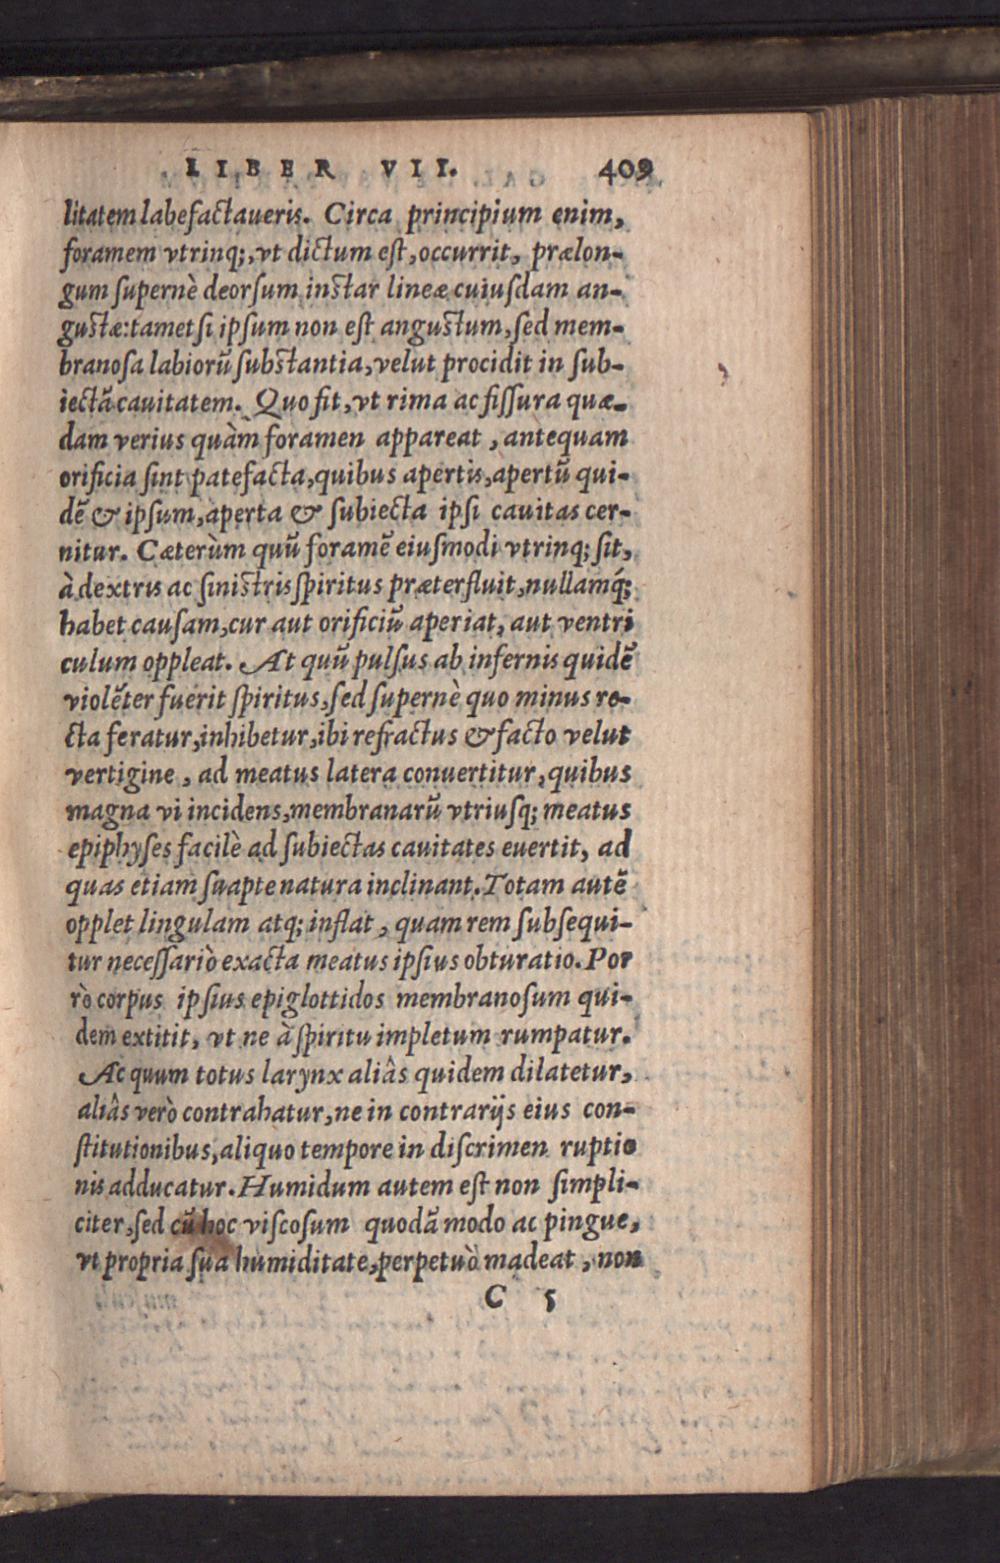 LIBER VII. 409
litatem labefactaueris. Circa principium enim,
foramem vtrinq;, vt dictum eſt, occurrit, prælon-
gum ſupernè deorſum inſtar lineæ cuiuſdam an-
guſtæ: tametſi ipſum non eſt anguſtum, ſed mem-
branoſa labiorũ ſubſtantia, velut procidit in ſub-
iectã cauitatem. Quo fit, vt rima ac fiſſura quæ-
dam verius quàm foramen appareat, antequam
orificia ſint patefacta, quibus apertis, apertũ qui-
dẽ & ipſum, aperta & ſubiecta ipſi cauitas cer-
nitur. Cæterùm quũ foramẽ eiuſmodi vtrinq; ſit,
à dextris ac ſiniſtris ſpiritus præterfluit, nullamq́;
habet cauſam, cur aut orificiũ aperiat, aut ventri
culum oppleat. At quũ pulſus ab infernis quidẽ
violẽter fuerit ſpiritus, ſed ſupernè quo minus re-
cta feratur, inhibetur, ibi refractus & facto velut
vertigine, ad meatus latera conuertitur, quibus
magna vi incidens, membranarũ vtriuſq; meatus
epiphyſes facilè ad ſubiectas cauitates euertit, ad
quas etiam ſuapte natura inclinant. Totam autẽ
opplet lingulam atq; inflat, quam rem ſubſequi-
tur neceſſariò exacta meatus ipſius obturatio. Por
rò corpus ipſius epiglottidos membranoſum qui-
dem extitit, vt ne à ſpiritu impletum rumpatur.
Ac quum totus larynx aliâs quidem dilatetur,
aliâs verò contrahatur, ne in contrarijs eius con-
ſtitutionibus, aliquo tempore in diſcrimen ruptio
nis adducatur. Humidum autem eſt non ſimpli-
citer, ſed cũ hoc viſcoſum quodã modo ac pingue,
vt propria ſua humiditate, perpetuò madeat, non
C 5